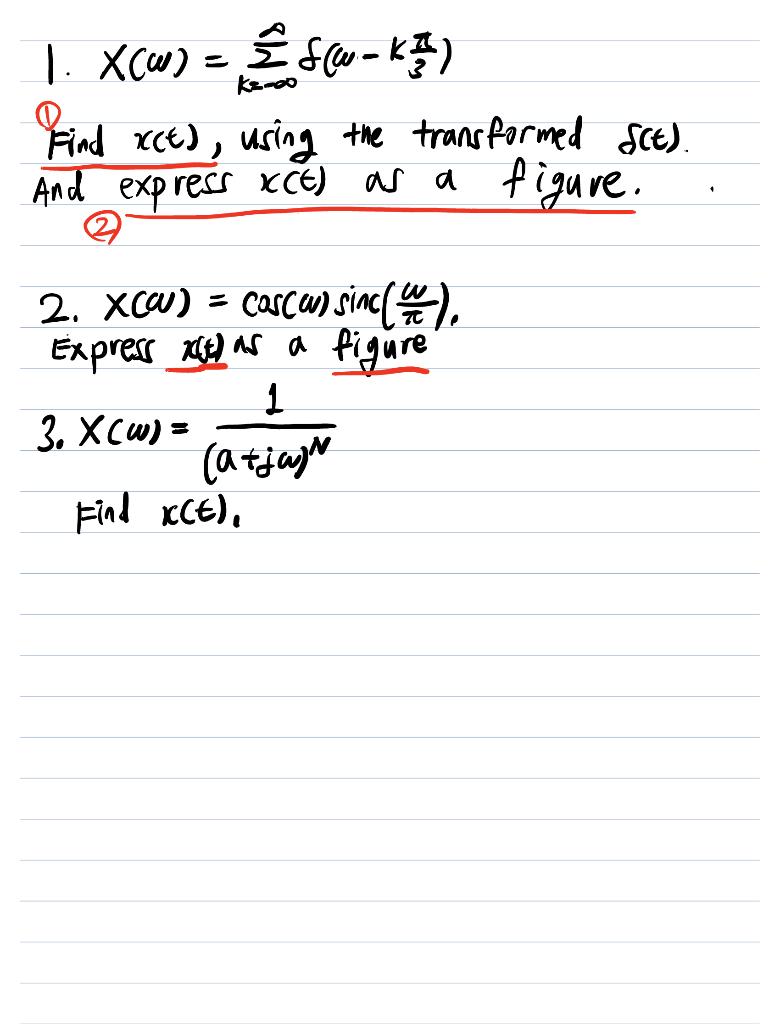 1. X(ω) = ∞Σk=-∞ δ(ω - kπ/3)
① Find x(t), using the transformed δ(t).
And express x(t) as a figure.
②
2. X(ω) = cos(ω) sinc(ω/π).
Express x(t) as a figure
3. X(ω) = 1/(a+jω)^N
Find x(t).